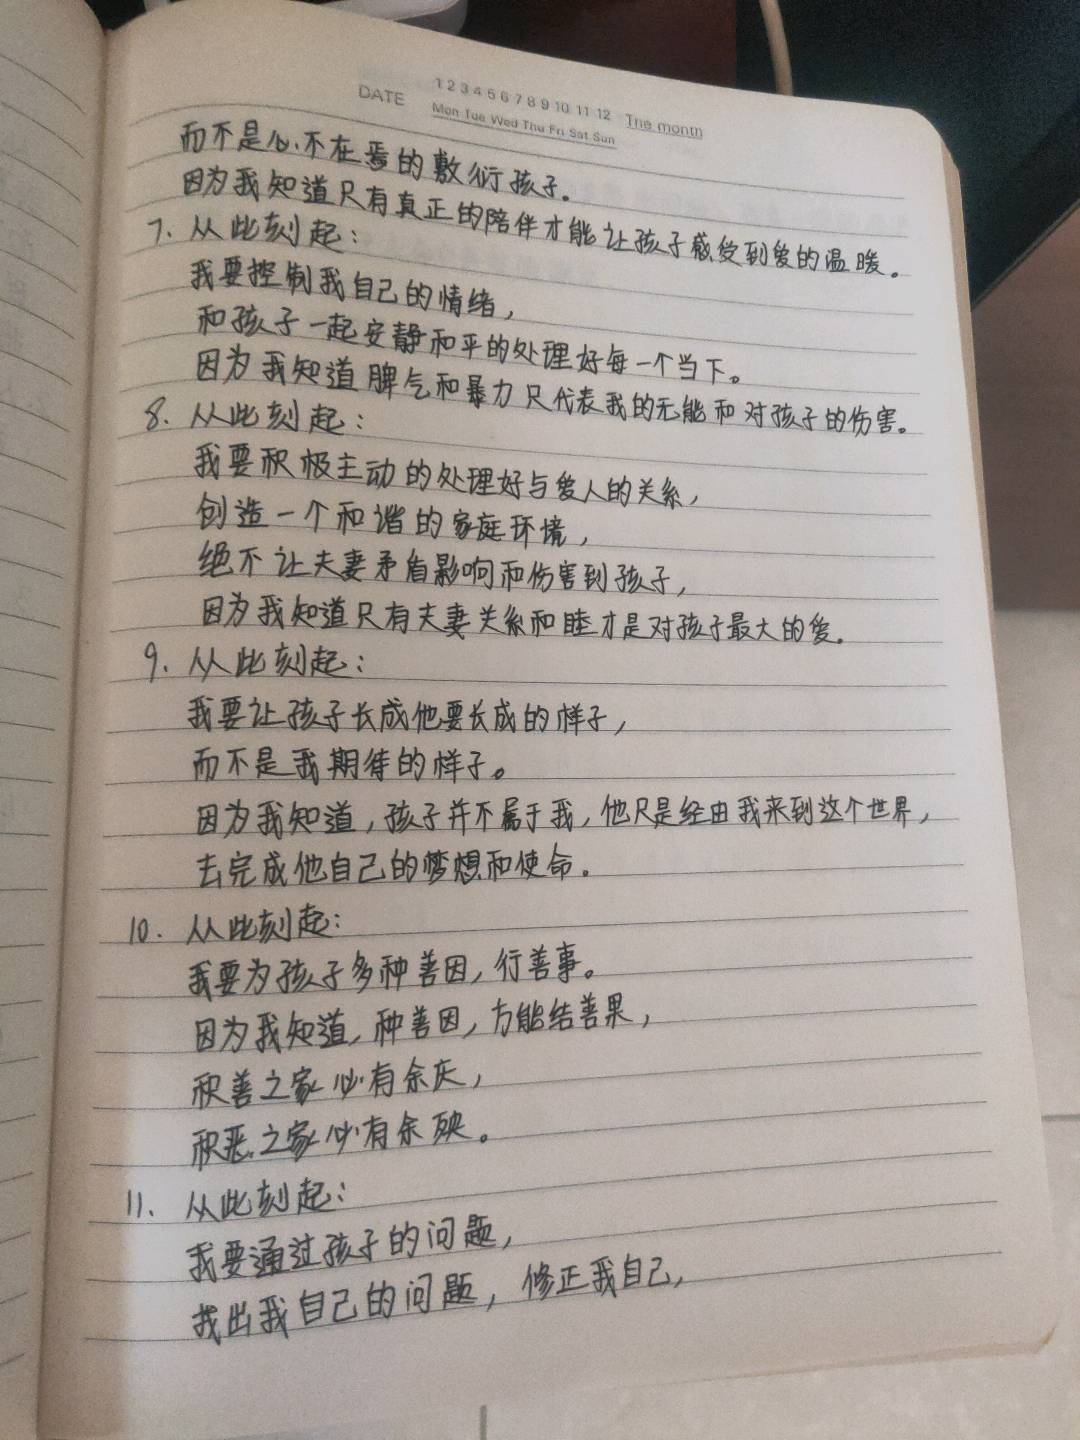 DATE
1 2 3 4 5 6 7 8 9 10 11 12 The month
Mon Tue Wed Thu Fri Sat Sun
而不是心不在焉的敷衍孩子。
因为我知道只有真正的陪伴才能让孩子感受到爱的温暖。
7. 从此刻起:
我要控制我自己的情绪,
和孩子一起安静和平的处理好每一个当下。
因为我知道脾气和暴力只代表我的无能和对孩子的伤害。
8. 从此刻起:
我要积极主动的处理好与爱人的关系,
创造一个和谐的家庭环境,
绝不让夫妻矛盾影响和伤害到孩子,
因为我知道只有夫妻关系和睦才是对孩子最大的爱。
9. 从此刻起:
我要让孩子长成他要长成的样子,
而不是我期待的样子。
因为我知道,孩子并不属于我,他只是经由我来到这个世界,
去完成他自己的梦想和使命。
10. 从此刻起:
我要为孩子多种善因,行善事。
因为我知道,种善因,方能结善果,
积善之家必有余庆,
积恶之家必有余殃。
11. 从此刻起:
我要通过孩子的问题,
找出我自己的问题,修正我自己,